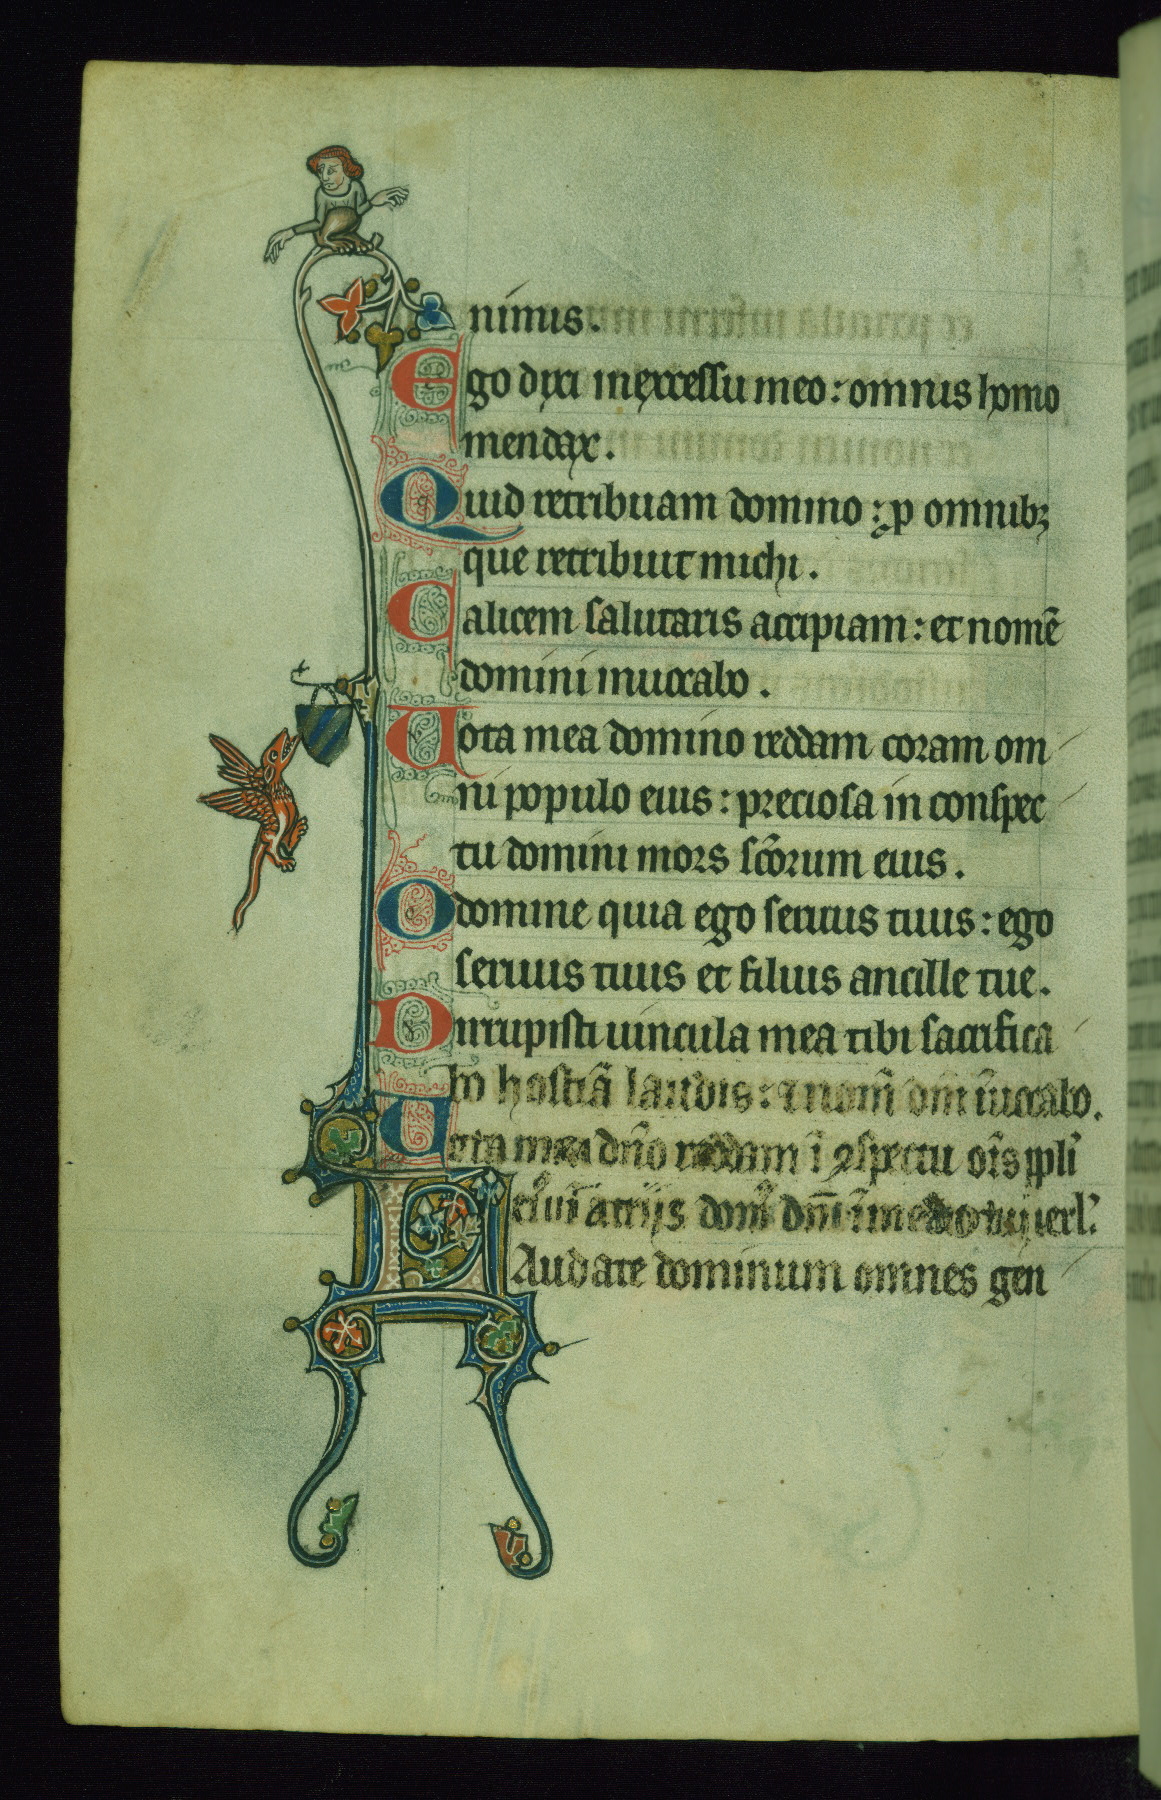 nimis.
Ego dixi in excessu meo: omnis homo
mendax.
Quid retribuam domino: p omnibꝫ
que retribuit michi.
Calicem salutaris accipiam: et nomē
domini inuocabo.
Uota mea domino reddam coram om
ni populo eius: preciosa in conspec
tu domini mors sc̄orum eius.
O domine quia ego seruus tuus: ego
seruus tuus et filius ancille tue.
Dirrupisti uincula mea tibi sacrifica
bo hostiā laudis: ⁊ nom̄ dn̄i īuocabo.
Uota mea dn̄o reddam ī ꝯspectu oīs ppli
atrijs dom dn̄i ī medio tui ierl.
Laudate dominum omnes gen